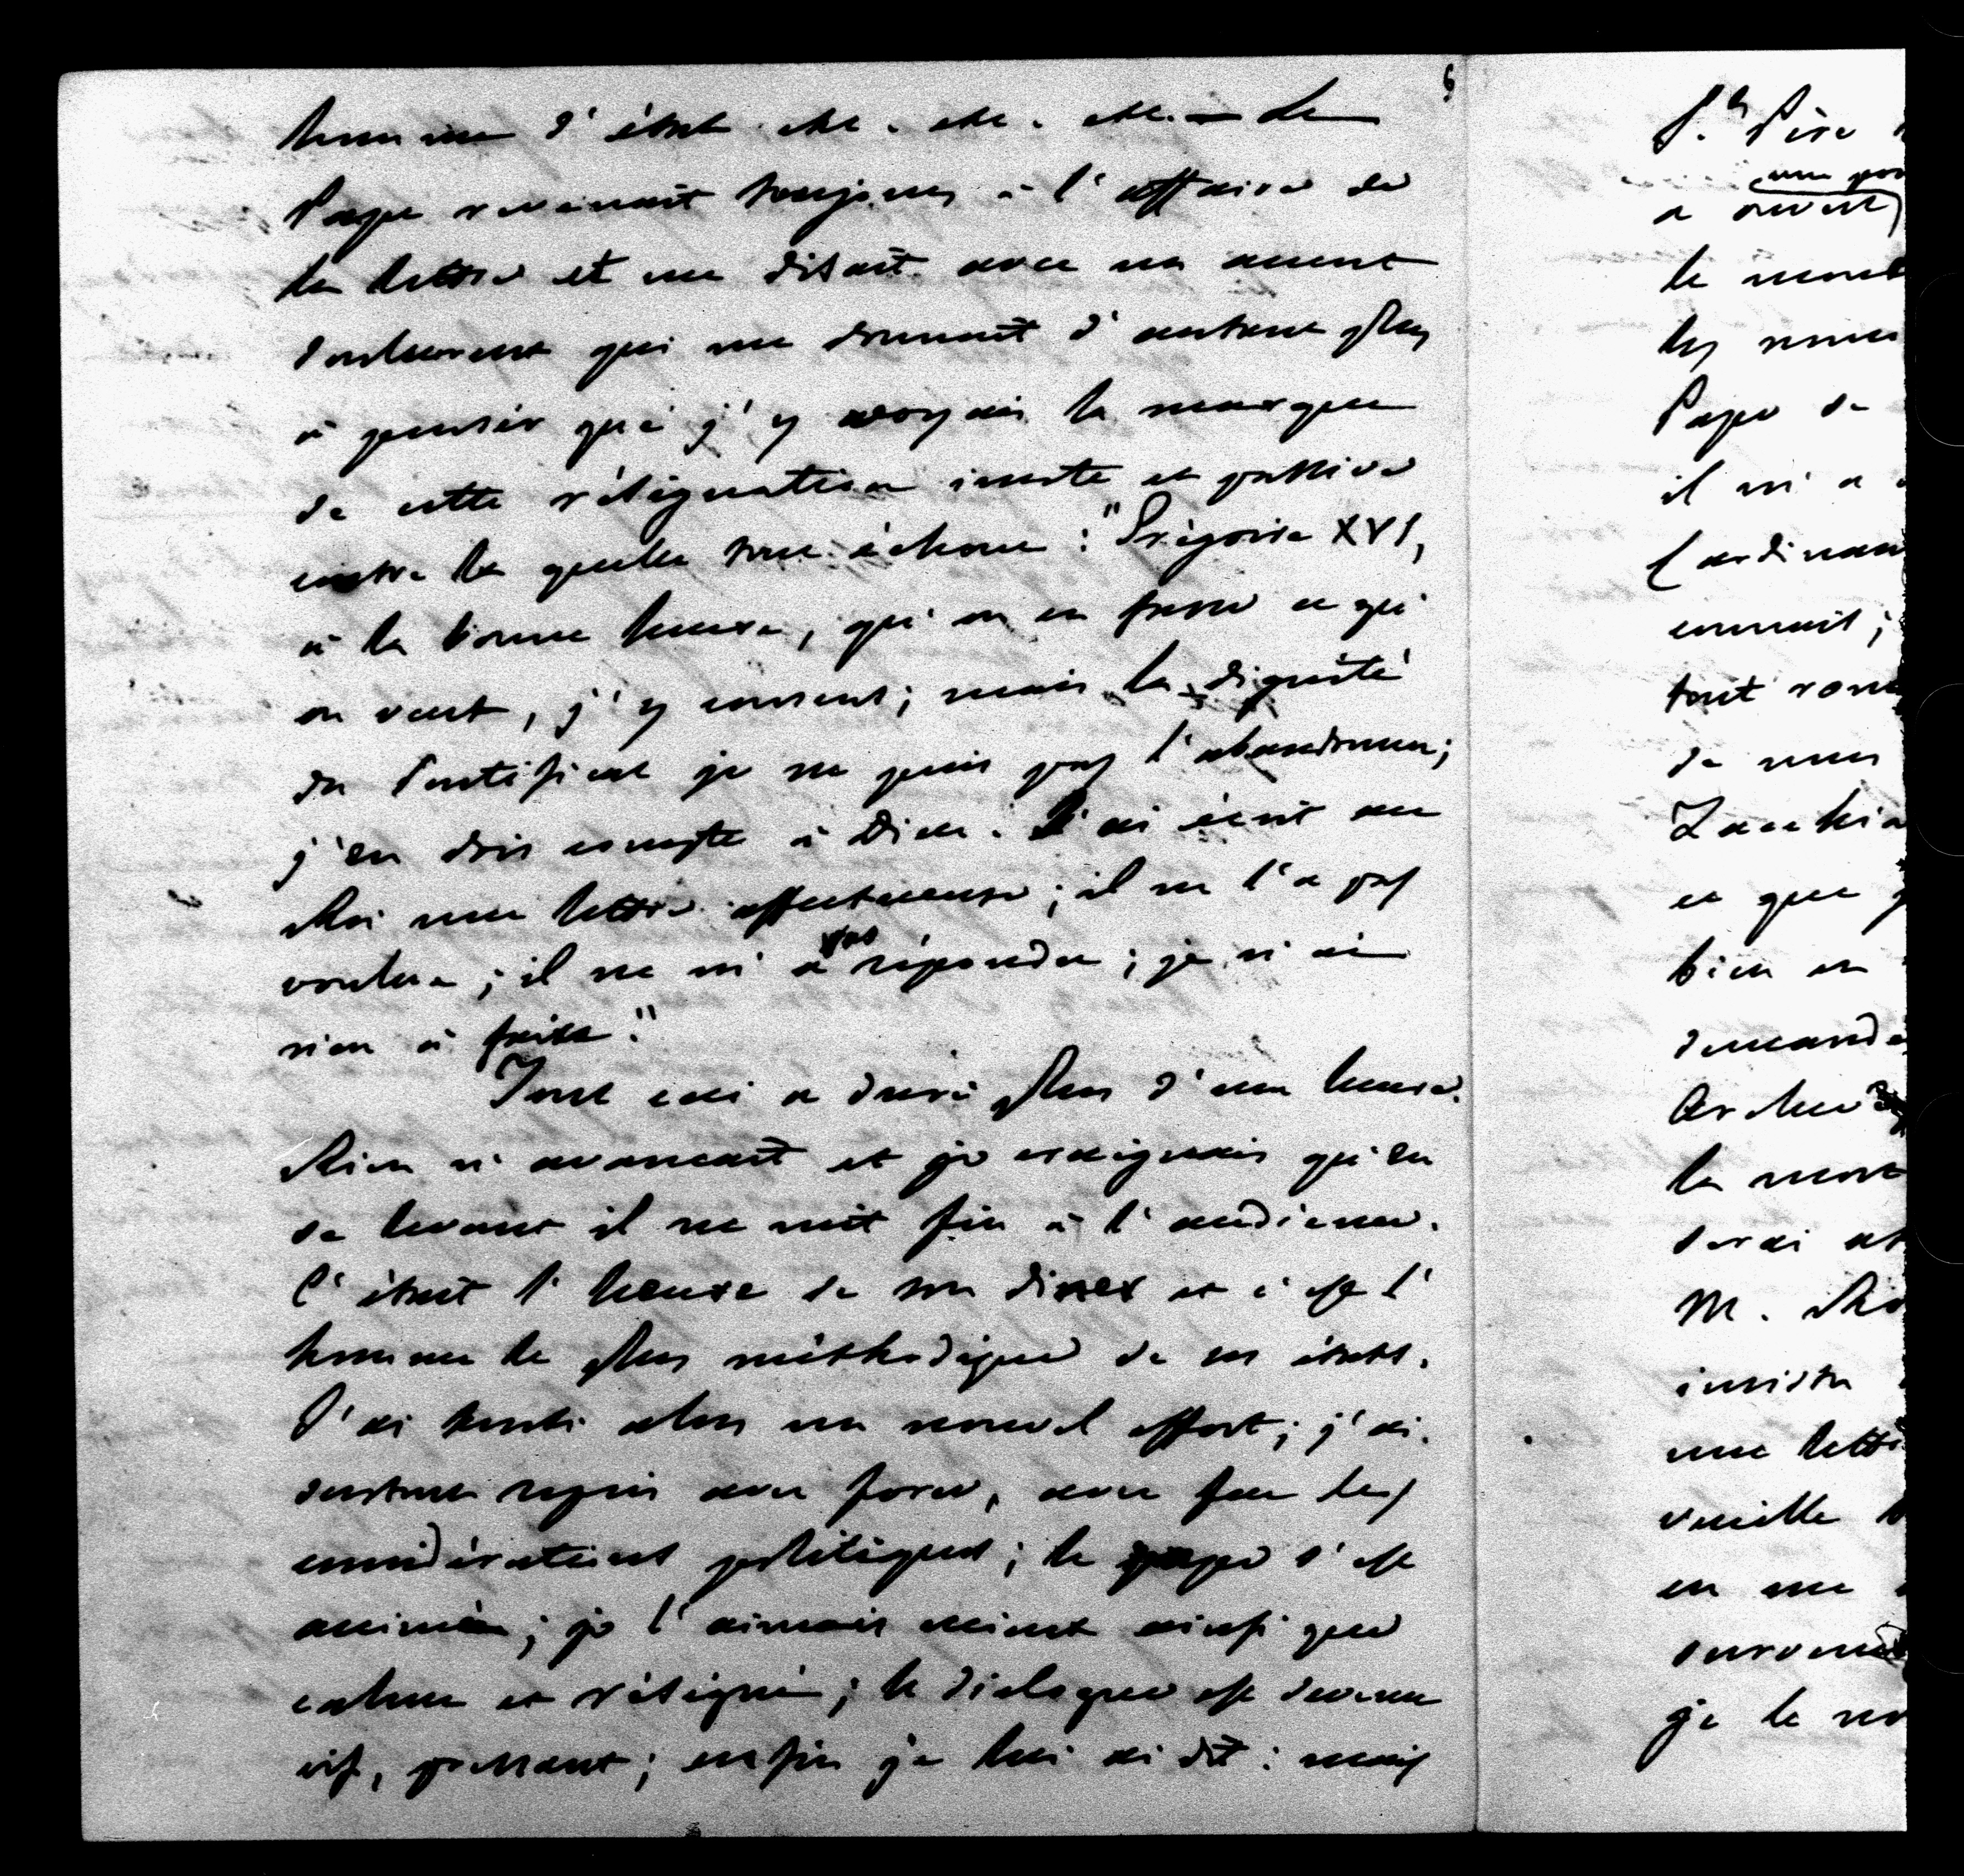 homme d'état etc. etc. etc. — Le
Pape revenait toujours à l'affaire de
la lettre et me disait avec un accent
douloureux qui me donnait d'autant plus
à penser que j'y voyais la marque
de cette résignation inerte et passive
contre la quelle tout échoue : "Grégoire XVI,
à la bonne heure, qu'on en fasse ce qu'
on veut, j'y consens; mais la dignité
du Pontificat je ne puis pas l'abandonner;
j'en dois compte à Dieu. J'ai écrit au
Roi une lettre affectueuse; il ne l'a pas
voulue; il ne m'a pas répondu; je n'ai
rien à faire."
Tout ceci a duré plus d'une heure.
Rien n'avancait et je craignais qu'en
se levant il ne mit fin à l'audience.
C'était l'heure de son diner et c'est l'
homme le plus méthodique de ses états.
J'ai tenté alors un nouvel effort; j'ai
surtout repris avec force, avec feu les
considérations politiques; le pape s'est
animé; je l'aimais mieux ainsi que
calme et résigné; le dialogue est devenu
vif, pressant; enfin je lui ai dit : mais
6
St. Père
a ouvert
le
les
Pape de
il m'a
Cardinaux
connait;
tout
de
Zacchia
ce que
bien
demand
la mort
serai
M.
insista
une lett
veuille
en me
je le